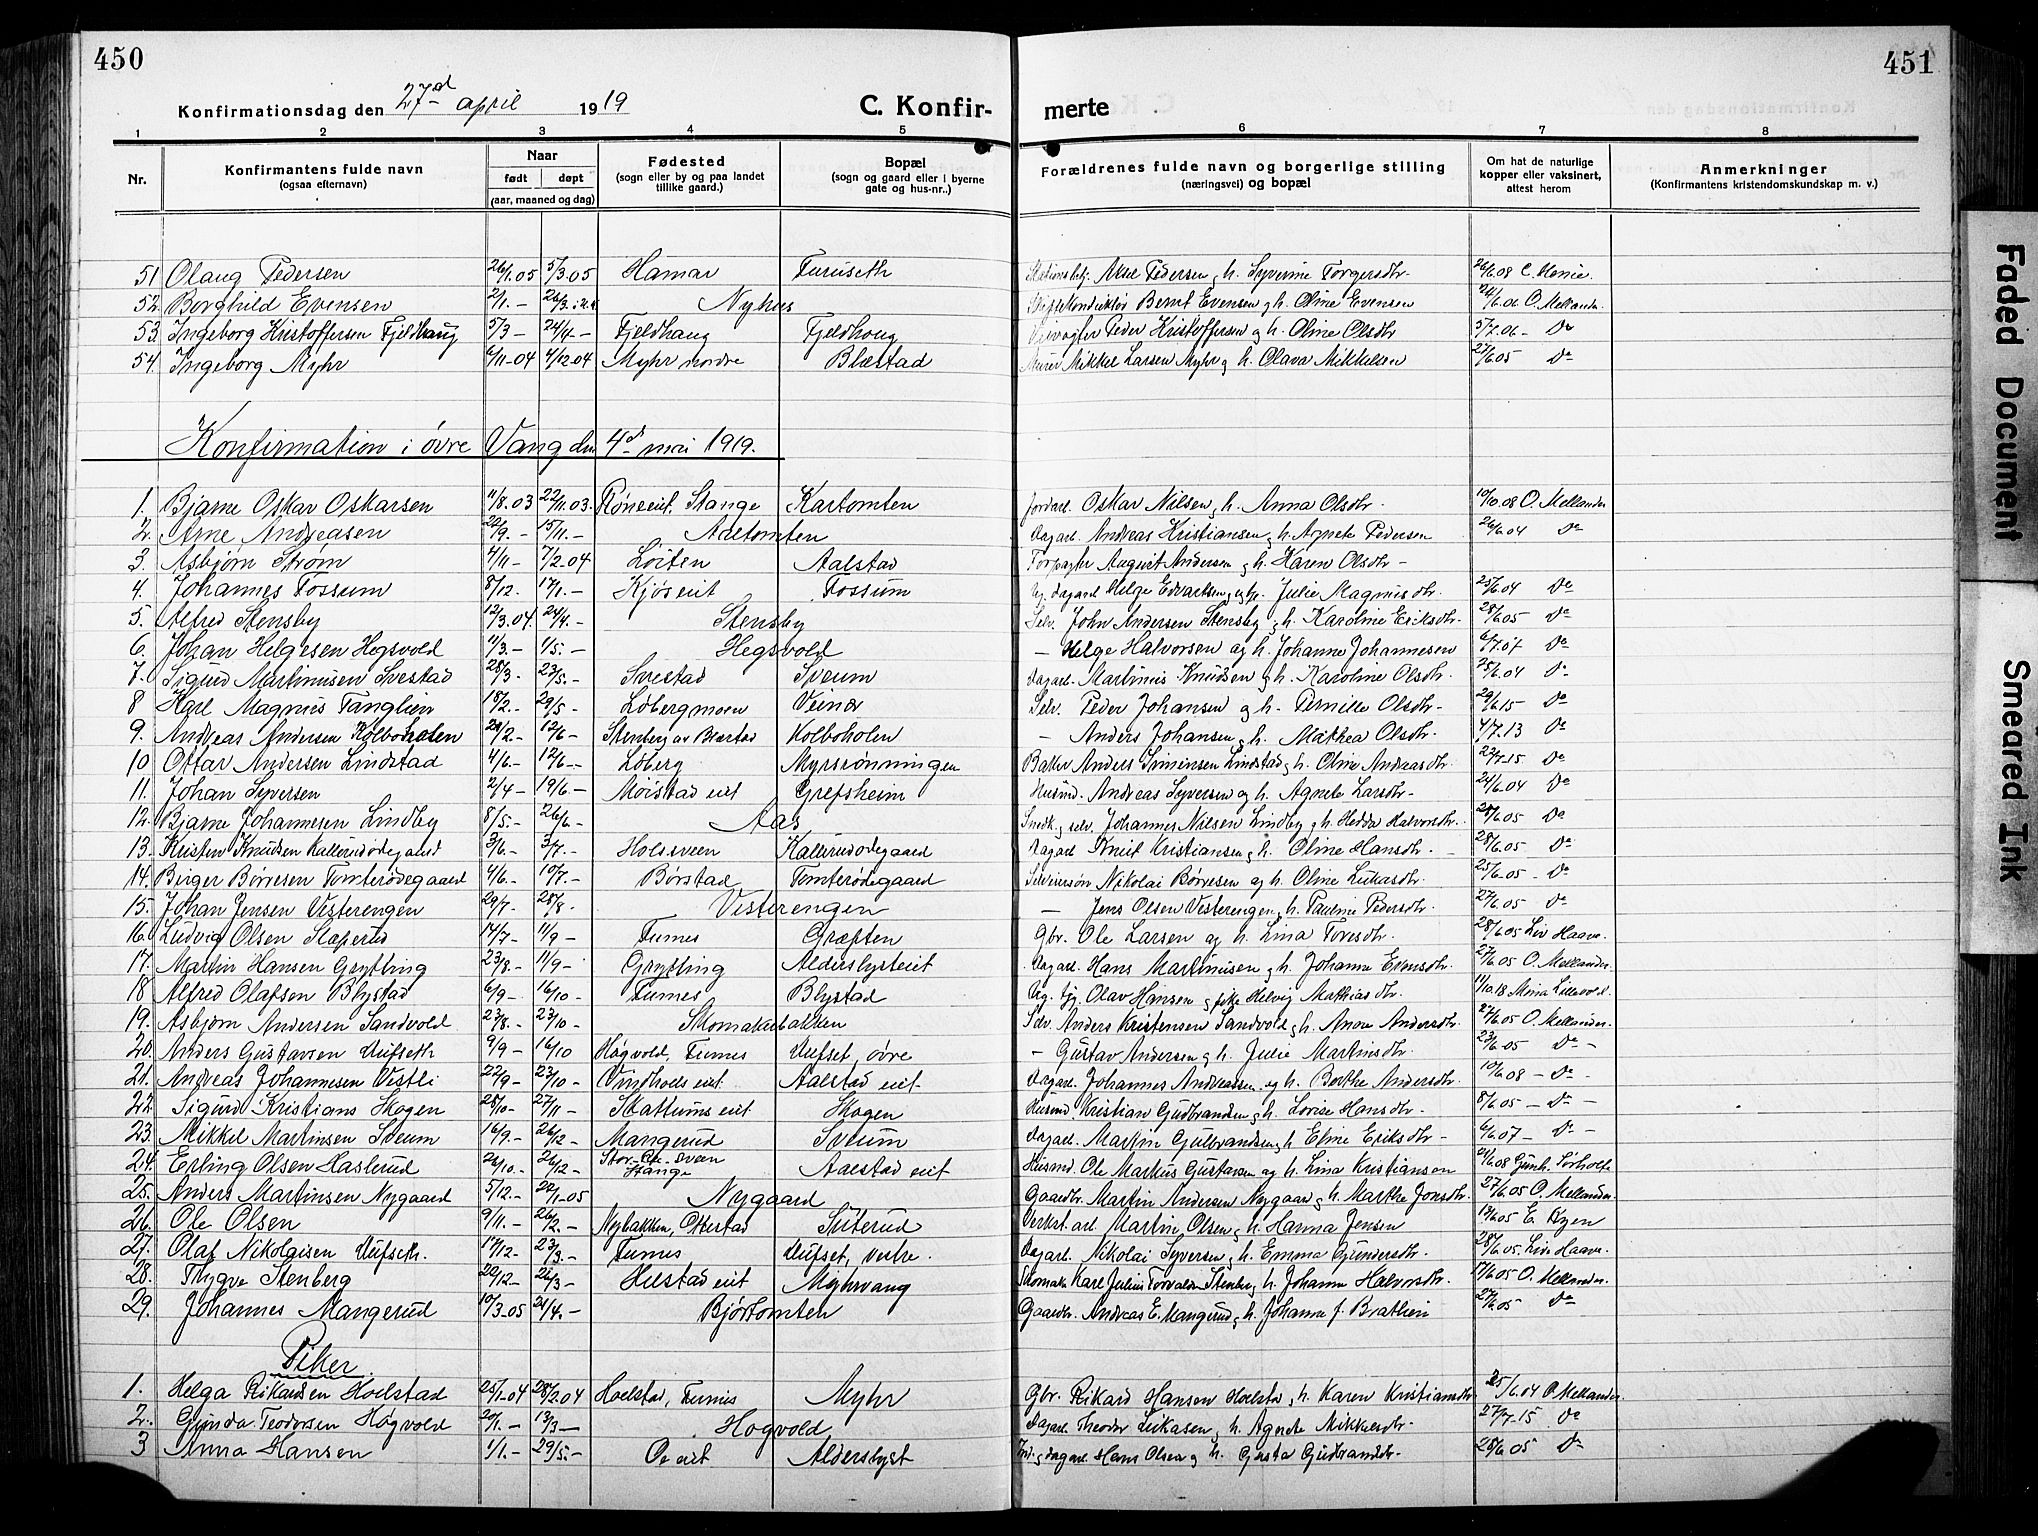 450
451
Konfirmationsdag den 27d april 1919
C. Konfir-
merte
1 2 3 4 5 6 7 8
Nr.
Konfirmantens fulde navn
(ogsaa efternavn)
Naar
født døpt
(aar, maaned og dag)
Fødested
(sogn eller by og paa landet
tillike gaard.)
Bopæl
(sogn og gaard eller i byerne
gate og hus-nr..)
Forældrenes fulde navn og borgerlige stilling
(næringsvei) og bopæl
Om hat de naturlige
kopper eller vaksinert,
attest herom
Anmerkninger
(Konfirmantens kristendomskundskap m. v.)
51 Olaug Pedersen 26/1.05 5/3.05 Hamar Furuseth Axel Pedersen og h. Syverine Torgersdtr. 26/6.08
52. Borghild Evensen 2/1.- Nyhus Skiftekonduktør Bernt Evensen og h. Oline Evensen O. Mellander
53. Ingeborg Kristoffersen Fjeldhaug 5/3 - 24/4 - Fjeldhaug Fjeldhaug Peder Kristoffersen og h. Oline Olsdtr 5/7.06 - Do
54. Ingeborg Myhr 6/11-04 4/12.04 Myhr nordre Blæstad Murer Mikkel Larsen Myhr og h. Olava Mikkelsen 27/6.05 Do
Konfirmation i øvre Vang den 4d mai 1919.
1. Bjarne Oskar Oskarsen 11/8.03 22/11.03. Stange Kartomten Jordarb. Oskar Nilsen, h. Anna Olsdtr. 10/10.08 O. Mellander
2. Arne Andreasen 22/9. - 15/11. - Aaltomten Dagarb. Andreas Kristiansen og h. Agnete Pedersen 26/6.04 Do
3. Asbjørn Strøm 4/11 - 7/2-04 Løiten Aalstad Forpagter August Andersen og h. Karen Olsdtr -
4. Johannes Fossum 8/12. 17/1. - Kjøs eiet Fossum Helge Edvartsen Julie Magnusdtr. 25/6.04 Do
5. Alfred Stensby 12/3.04. 24/4. - Stensby Selv. John Andersen Stensby og h. Karoline Eriksdtr. 28/6.05 Do
6. Johan Helgesen Hegsvold 11/3. - 1/5. - Hegsvold - Helge Halvorsen og h. Johanne Johannesen 6/7.07 Do
7. Sigurd Martinusen Svestad 28/3. 23/5. - Svestad Sveum Dagarb. Martinus Knudsen og h. Karoline Olsdtr. 25/6.04 Do
8 Karl Magnus Tanglien 18/2. - 29/5 - Løbergmoen Veinor Selv. Peder Johansen og h. Pernille Olsdtr - 29/6.15 - Do
9. Andreas Andersen Kolboholen 12/6 - Stenberg av Blæstad Kolboholen - Anders Johansen og h. Mathea Olsdtr. 4/7.13 Do
10 Ottar Andersen Lindstad 4/6. - 12/6 - Løberg Myrsrønningen Baker Anders Simensen Lindstad og h. Oline Andreasdtr. 22/7.15 Do
11. Johan Syversen 2/4 - 19/6. - Møistad eiet Grefsheim Husmd. Andreas Syversen og h. Agnete Larsdtr - 24/6.04 Do
12. Bjarne Johannesen Lindby 8/5. - 26/6. - Aas Snedk. og selv. Johannes Nilsen Lindby og h. Hedda Halvorsdtr. 28/6.05 Do
13. Kristen Knudsen Kallerudødegaard 3/6. - 3/7. - Holssveen Kallerudødegaard Dagarb Knut Kristiansen og h. Oline Hansdtr. 28/6.05 Do
14. Birger Børresen Tomterødegaard 4/6. - 10/7. - Børstad Tomterødegaard Nikolai Børresen og h. Oline Lukasdtr. 25/6.05 - Do
15. Johan Jensen Vesterengen 29/7 - 28/8 - Vesterengen - Jens Olsen Vesterengen og h. Pauline Pedersdtr. 27/6.05 Do
16. Ludvig Olsen Slaperud 14/7 - 11/9 - Furnes Græften Gbr. Ole Larsen og h. Lina Toresdtr. 28/6.05 Liv Haave.
17. Martin Hansen Grytting 23/8. - 11/9 - Grytting Alderslysteiet Dagarb. Hans Martinusen og h. Johanne Evensdtr. 27/6.05 O. Mellander.
18 Alfred Olafsen Blystad 6/9 - 16/10 - Furnes Blystad Olav Hansen og pike Helvig Mathiasdtr. 11/10.18 Mina Lillevold.
19. Asbjørn Andersen Sandvold 23/8. - 23/10 - Skomakerbakken Selv. Anders Kristensen Sandvold og h. Anne Andersdtr. 27/6.05 O. Mellander.
20. Anders Gustavsen Ufseth 9/9 - 16/10 Høgvold, Furnes Ufset, øvre - Gustav Andersen og h. Julie Martinsdtr. 23/6.05 Do -
21. Andreas Johannesen Vestli 22/9 - 23/10 - Vindhols eiet Aalstad eiet Dagarb. Johannes Andreassen og h. Berthe Andersdtr. 10/6.08 - Do -
22. Sigurd Kristians Skogen 28/10 - 27/11 - Skattums eiet Skogen Husmd. Kristian Gudbrandsen og h. Lovise Hansdtr - 8/6.05 - Do -
23. Mikkel Martinsen Sveum 16/9. - 26/12 - Mangerud Sveum Dagarb. Martin Gulbrandsen og h. Eline Eriksdtr - 6/6.07 - Do -
24. Erling Olsen Haslerud 26/10. - 26/12 - Stange Aalstad eiet Husmd. Ole Markus Gustavsen og h. Lina Kristiansen Gunh. Sørholte
25. Anders Martinsen Nygaard 5/12. - 22/1-05 Nygaard Gaardbr. Martin Andersen Nygaard og h. Marthe Jonsdtr. 27/6.05 O. Mellander.
26. Ole Olsen 9/11. - 26/2. - Nybakken, Ottestad Sæterud Verkst. arb. Martin Olsen og h. Hanna Jensen E. Ryen
27. Olaf Nikolaisen Ufseth. 17/12. - 23/3. - Furnes Ufset, vestre. Dagarb. Nikolai Syversen og h. Emma Gundersdtr. 28/6.05. Liv Haave.
28. Thygve Stenberg 22/12 - 26/3 - Helstad eiet Myhrvang Skomak Karl Julius Torvaldsen Stenberg h. Johanne Halvorsdtr. O. Mellander.
29. Johannes Mangerud 10/3.05 21/4. - Bjørtomten Gaardbr. Andreas E. Mangerud og h. Johanne f. Brathein 27/6.05 Do
Piker
1. Helga Rikardsen Hoelstad 25/1-04 28/2.04 Hoelstad, Furnes Myhr Gbr. Rikard Hansen Hoelstad, h. Karen Kristiansdtr. 25/6.04 O. Mellander.
2. Gunda Teodorsen Høgvold 20/1. - 13/3 - Høgvold Dagarb. Theodor Lukasen, h. Agnete Mikkelsdtr - 27/7.15 Do
3 Anna Hansen 1/1. - 29/5. - Oe eiet Alderslyst Hans Olsen og h. Gusta Gudbrandsdtr. 28/6.05 Do
Faded Document
Smeared Ink